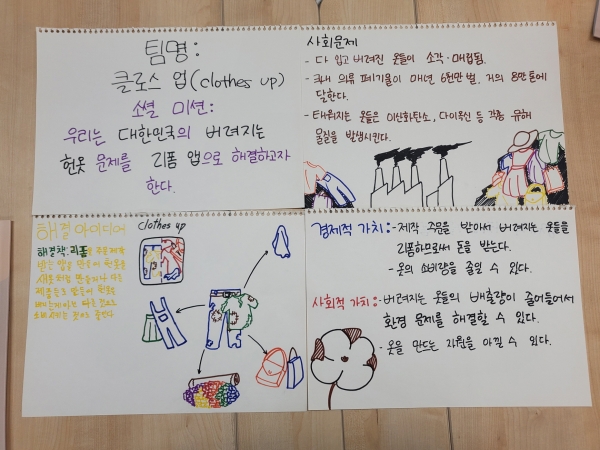 팀명:
클로스 업(clothes up)
소셜 미션:
우리는 대한민국의 버려지는
헌옷 문제를 리폼 앱으로 해결하고자
한다.
사회문제
- 다 입고 버려진 옷들이 소각·매립됨.
- 국내 의류 폐기물이 매년 6천만 벌, 거의 8만 톤에
달한다.
- 태워지는 옷들은 이산화탄소, 다이옥신 등 각종 유해
물질을 발생시킨다.
해결 아이디어
해결책: 리폼을 주문제작
받는 앱을 만들어 헌옷을
새옷처럼 만들거나 다른
제품들도 만들어
clothes up
경제적 가치: - 제작 주문을 받아서 버려지는 옷들을
리폼하므로써 돈을 번다.
- 옷의 소비량을 줄일 수 있다.
사회적 가치: - 버려지는 옷들의 배출량이 줄어들어서
환경 문제를 해결할 수 있다.
- 옷을 만드는 자원을 아낄 수 있다.